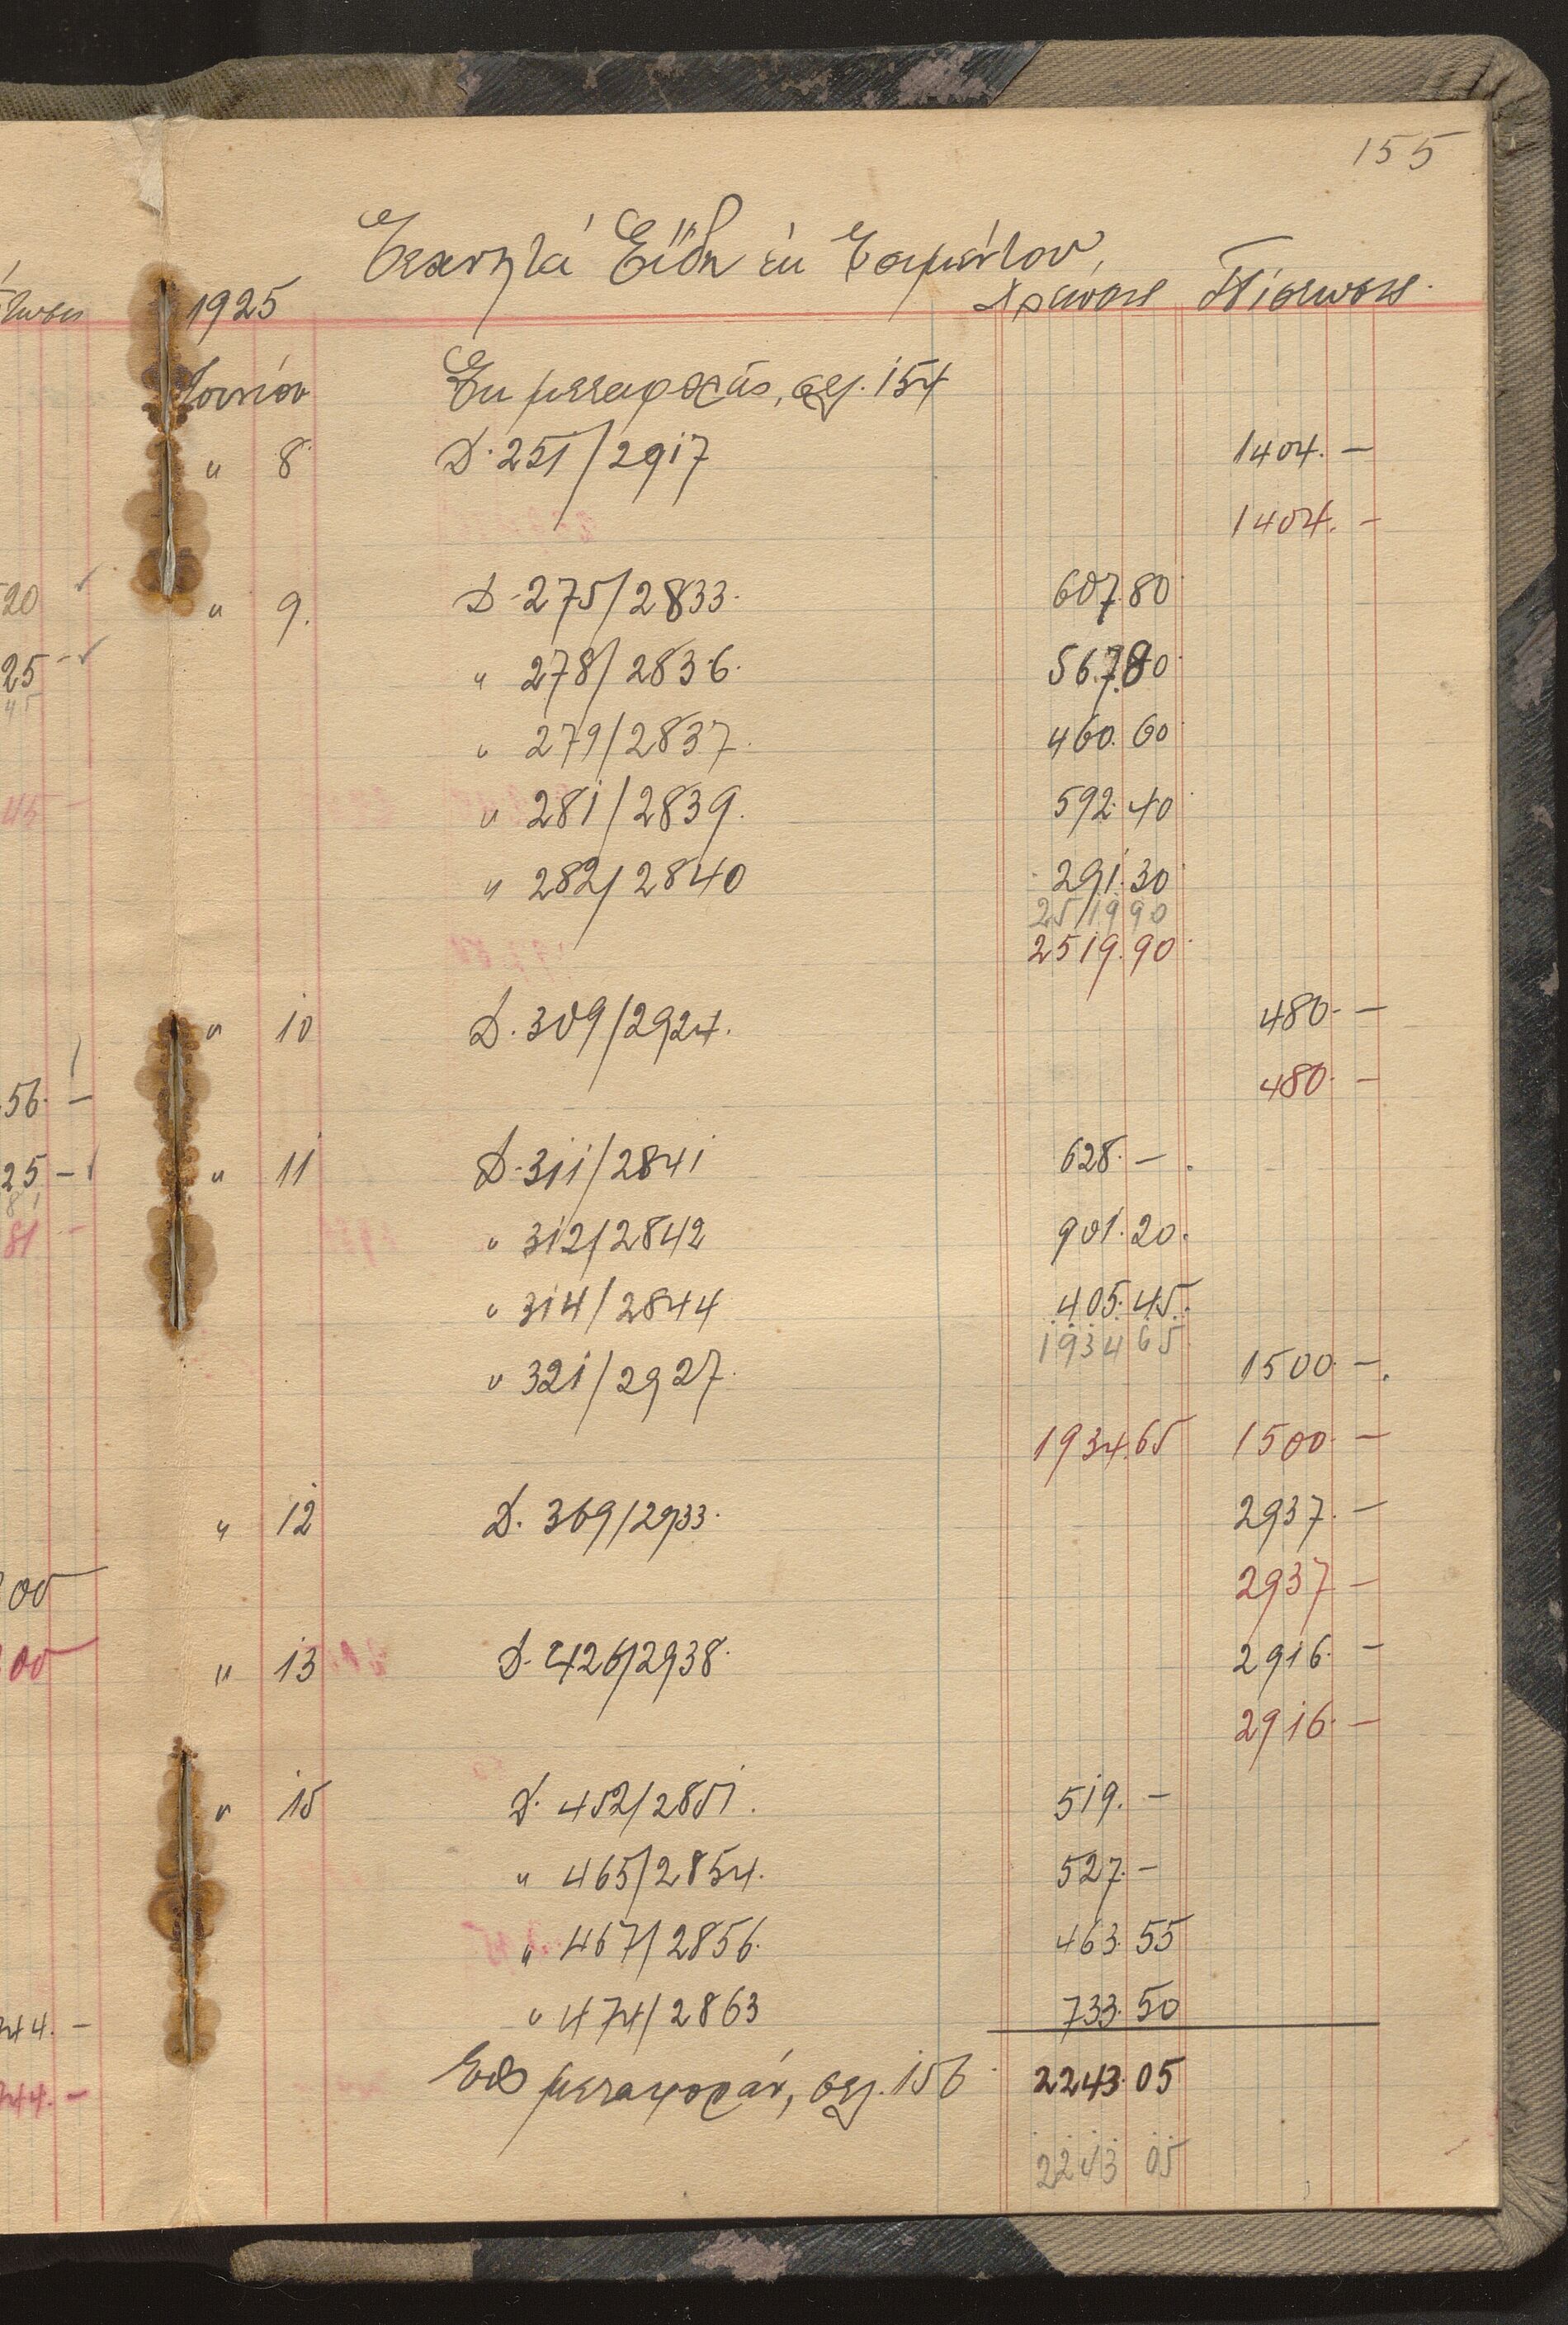 155
Τεχνητά Είδη έκ Τσιμέντου
1925 Χρέωσις Πίστωσις
Ἰουνίου Ἐκ μεταφοράς, σελ. 154
" 8 Δ. 251/2917 1404. —
1404. —
" 9. Δ. 275/2833. 607.80
" 278/2836. 567.80
" 279/2837. 460.60
" 281/2839. 592.40
" 282/2840 291.30
2519 90
2519.90
" 10 Δ. 309/2924. 480. —
480. —
" 11 Δ. 311/2841 628. —
" 312/2842 901.20.
" 314/2844 405.45.
1934 65
" 321/2927. 1500 —.
1934.65 1500. —
" 12 Δ. 369/2933. 2937. —
2937 —
" 13 Δ. 426/2938. 2916. —
2916. —
" 15 Δ. 452/2851. 519. —
" 465/2854. 527. —
" 467/2856. 463.55
" 474/2863 733.50
Εἰς μεταφοράν, σελ. 156 2243.05
2243 05
20
25 —
45
45 —
56. —
25 —
81 —
00
00
44. —
44. —